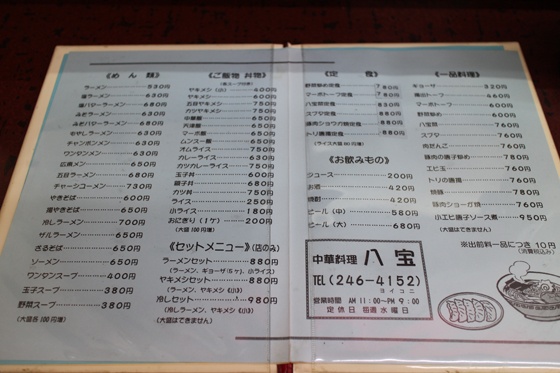 《めん類》
ラーメン 530円
塩ラーメン 630円
塩バターラーメン 680円
みそラーメン 630円
みそバターラーメン 680円
もやしラーメン 630円
チャンポンメン 630円
ワンタンメン 630円
広東メン 650円
五目ラーメン 680円
チャーシューメン 730円
やきそば 600円
揚やきそば 650円
冷しラーメン 700円
ザルラーメン 650円
ざるそば 650円
ソーメン 650円
ワンタンスープ 400円
玉子スープ 380円
野菜スープ 380円
(大盛各100円増)
《ご飯物 丼物》
ヤキメシ (小) 400円
ヤキメシ 600円
五目ヤキメシ 750円
カツヤキメシ 750円
中華飯 650円
天津飯 650円
マーボ飯 650円
ムンス一飯 650円
オムライス 750円
カレーライス 630円
カツカレーライス 750円
玉子丼 600円
親子丼 680円
カツ丼 750円
ライス 250円
小ライス 180円
おにぎり (1ケ) 200円
(大盛100円増)
《セットメニュー》(店のみ)
ラーメンセット 880円
(ラーメン、ギョーザ(5ケ)、小ライス)
ヤキメシセット 880円
(ラーメン、ヤキメシ《小》)
冷しセット 980円
(冷しラーメン、ヤキメシ《小》)
(大盛はできません)
《定食》
野菜炒め定食 780円
マーボトーフ定食 780円
八宝菜定食 880円
スブタ定食 880円
豚肉ショウガ焼定食 880円
トリ唐揚定食 880円
(ライス大盛50円増)
《お飲みもの》
ジュース 200円
お酒 420円
焼酎 420円
ビール (中) 580円
ビール (大) 680円
中華料理 八宝
TEL (246-4152)
ヨイコニ
営業時間 AM 11:00〜PM 9:00
定休日 毎週水曜日
《一品料理》
ギョーザ 320円
揚出トーフ 460円
マーボトーフ 600円
野菜炒め 600円
八宝菜 760円
スブタ 760円
肉だんご 760円
豚肉の唐子炒め 780円
エビ玉 760円
トリの唐揚 760円
焼豚 780円
豚肉ショーガ焼 760円
小エビ唐子ソース煮 950円
(大盛はできません)
※出前料一品につき10円
(消費税込み)